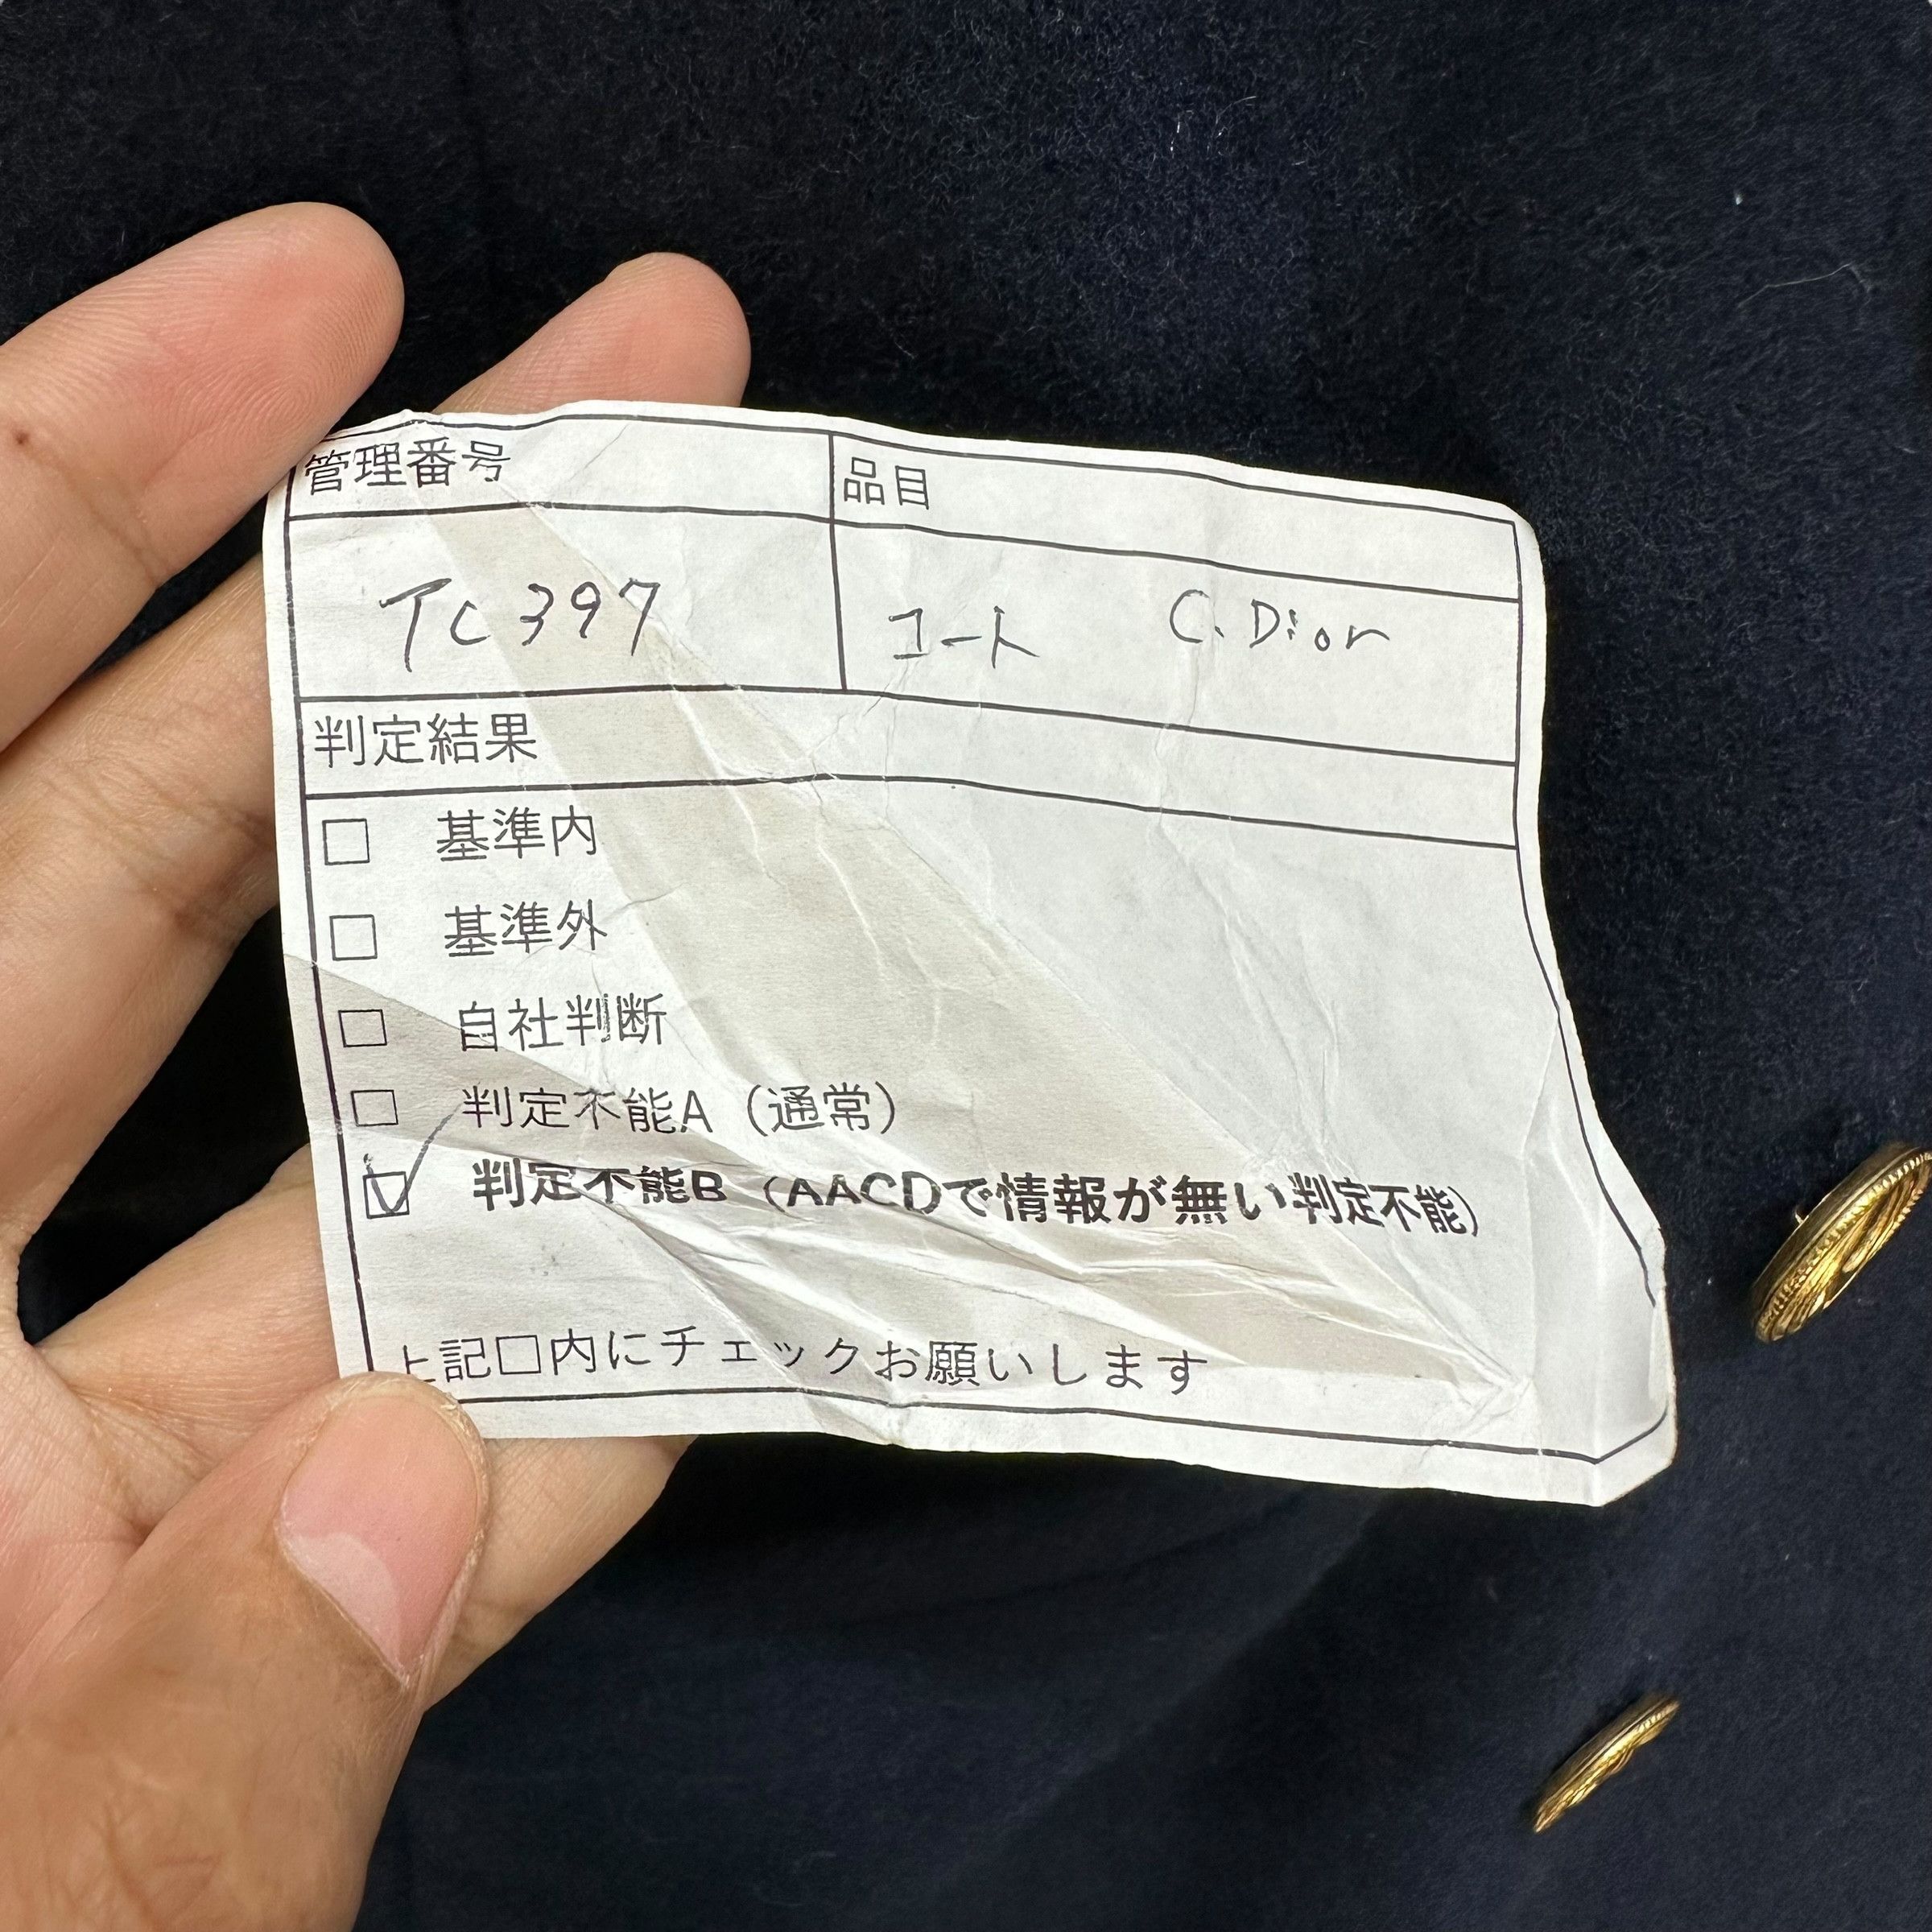 管理番号 品目
TC397 コート C.Dior
判定結果
□ 基準内
□ 基準外
□ 自社判断
□ 判定不能A（通常）
☑ 判定不能B（AACDで情報が無い判定不能）
上記□内にチェックお願いします